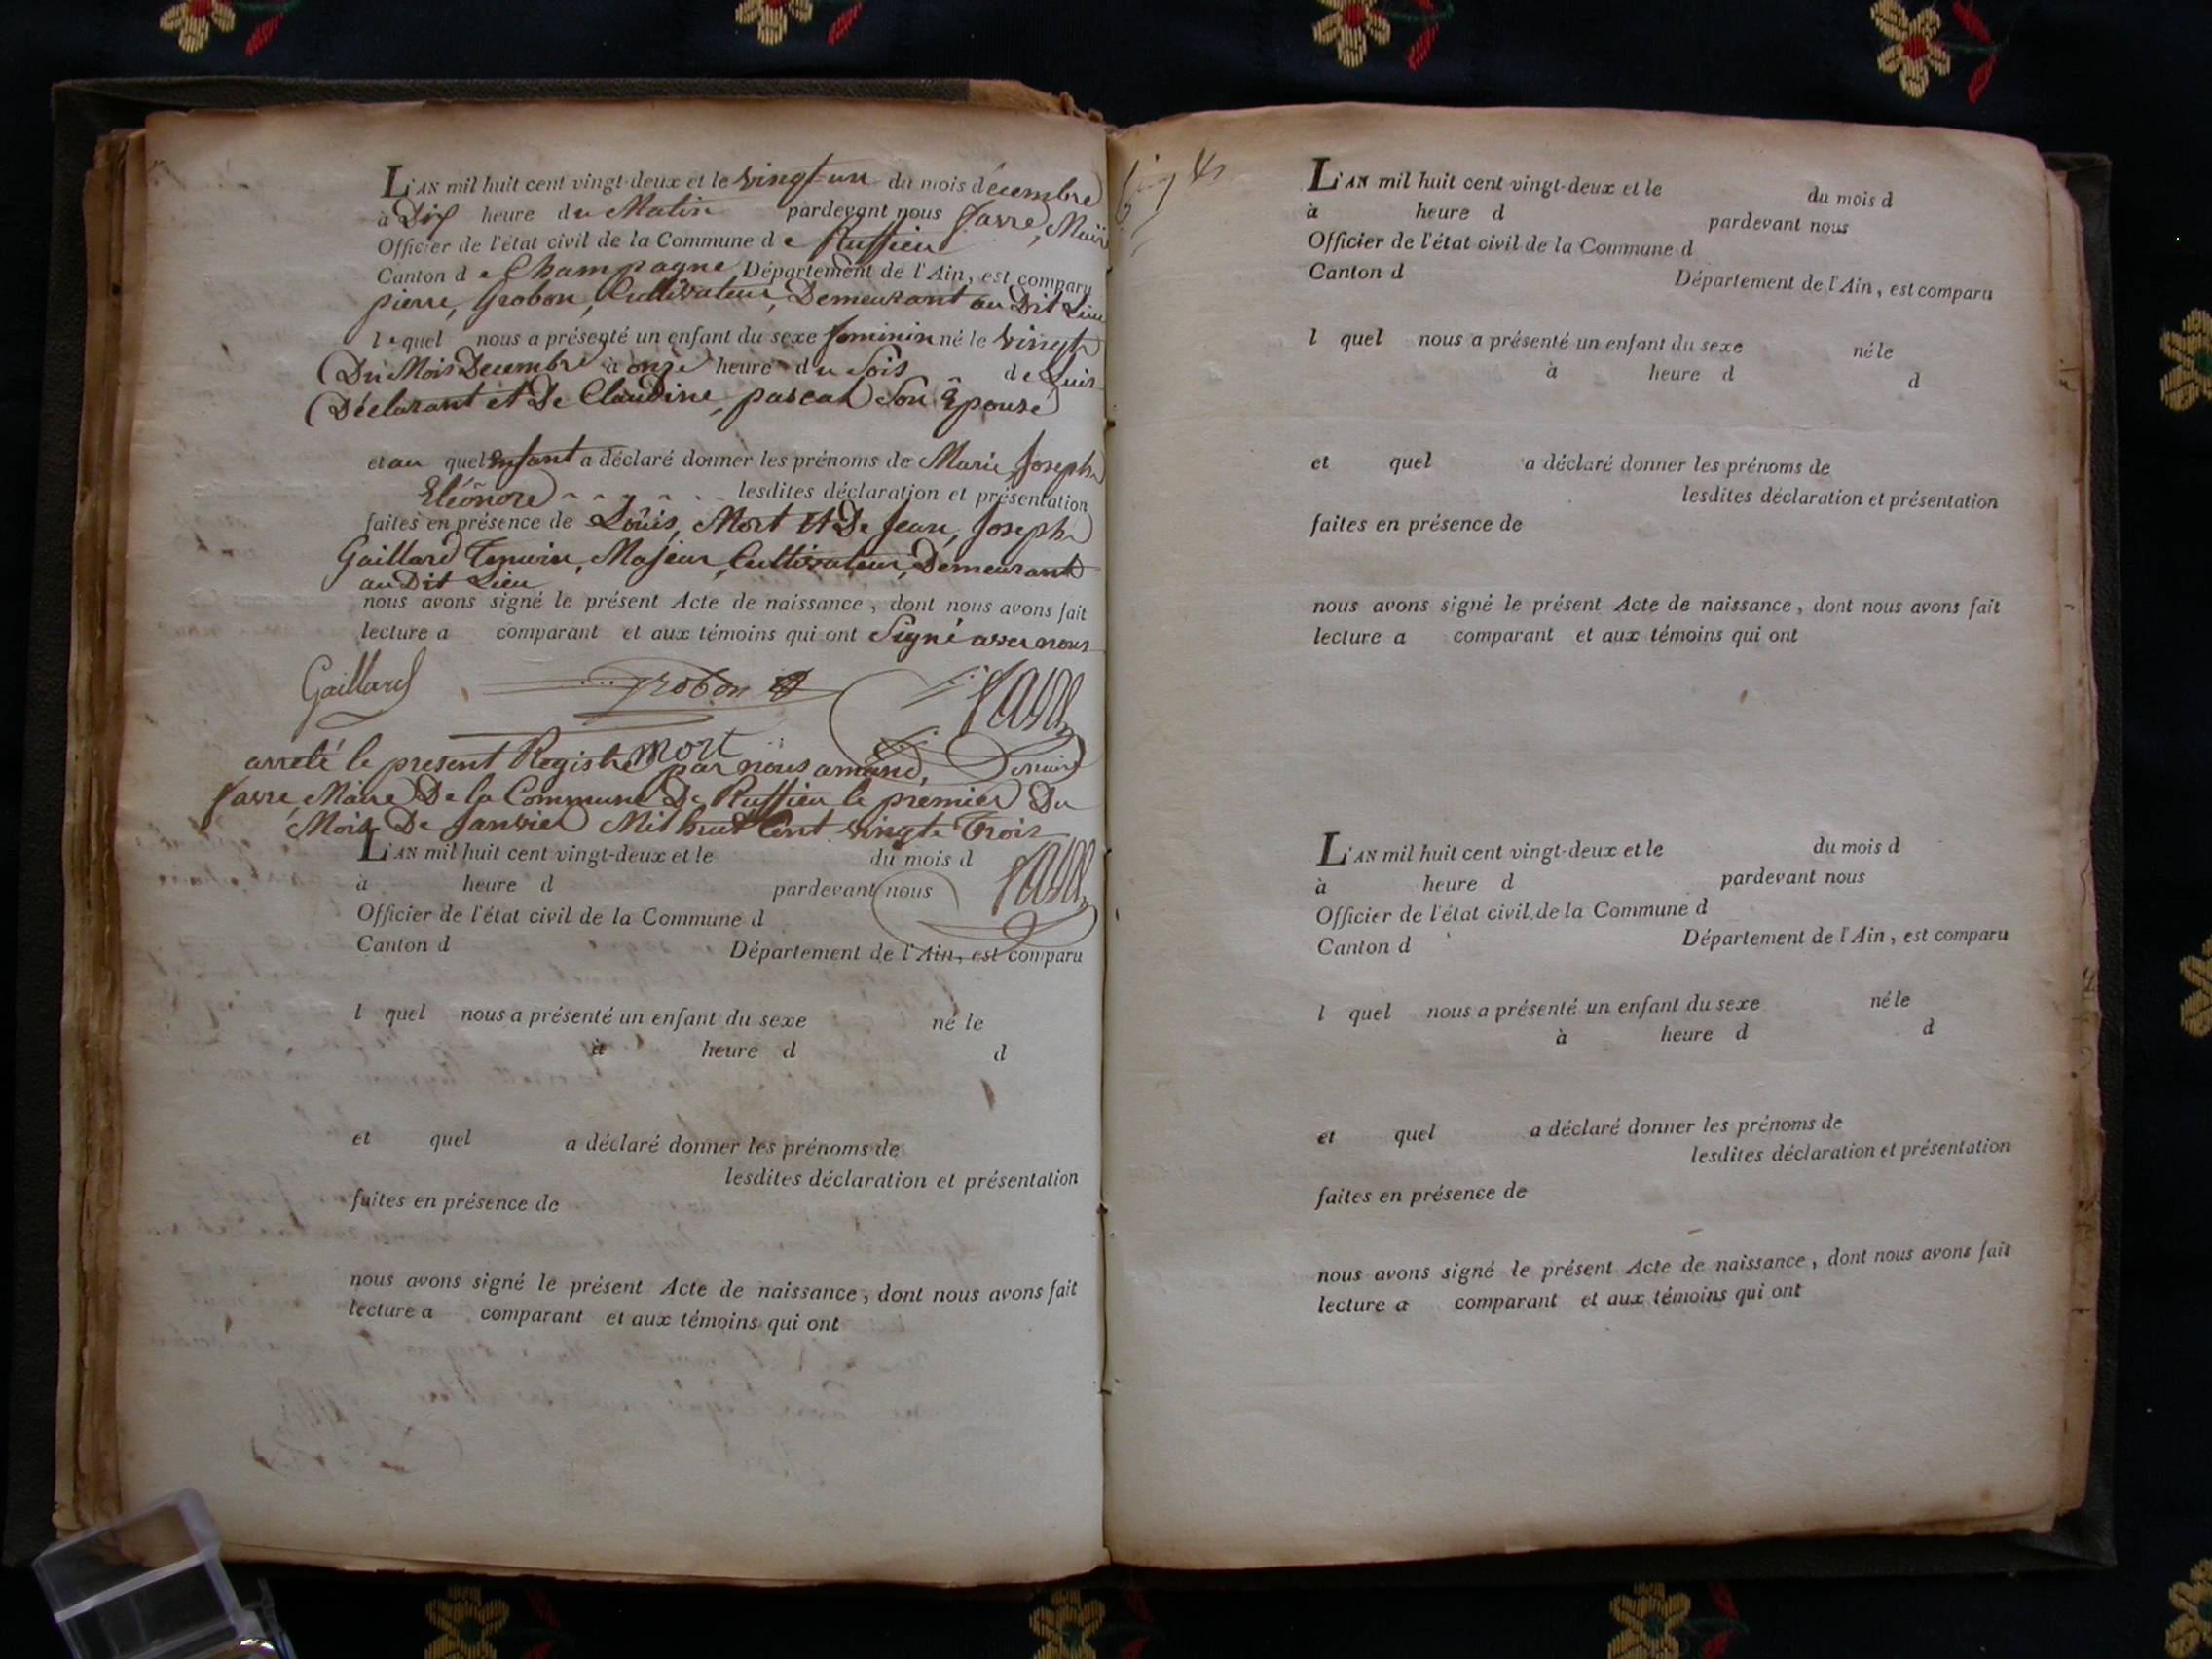 L'AN mil huit cent vingt-deux et le vingt-un du mois décembre
à Dix heure du Matin pardevant nous favre, Maire
Officier de l'état civil de la Commune de Ruffieu
Canton de Champagne, Département de l'Ain, est comparu
pierre, Grobon, Cultivateur, Demeurant au Dit Lieu
lequel nous a présenté un enfant du sexe feminin né le vingt
Du Mois Decembre à onze heure du Soir de Luis
Déclarant et De Claudine, pascal Son Epouse
et au quel Enfant a déclaré donner les prénoms de Marie Joseph
Eléonore lesdites déclaration et présentation
faites en présence de Louis, Mort Et De Jean, Joseph
Gaillard Temoin, Majeur, Cultivateur, Demeurant
au Dit Lieu
nous avons signé le présent Acte de naissance, dont nous avons fait
lecture a comparant et aux témoins qui ont Signé avec nous
Gaillard grobon favre
mort
arreté le present Registre par nous amand,
favre, Maire De la Commune De Ruffieu le premier Du
Mois De Janvier Mil huit Cent vingt Trois
L'AN mil huit cent vingt-deux et le du mois d
à heure d pardevant nous favre
Officier de l'état civil de la Commune d
Canton d Département de l'Ain, est comparu
l quel nous a présenté un enfant du sexe né le
à heure d d
et quel a déclaré donner les prénoms de
lesdites déclaration et présentation
faites en présence de
nous avons signé le présent Acte de naissance, dont nous avons fait
lecture a comparant et aux témoins qui ont
L'AN mil huit cent vingt-deux et le du mois d
à heure d pardevant nous
Officier de l'état civil de la Commune d
Canton d Département de l'Ain, est comparu
l quel nous a présenté un enfant du sexe né le
à heure d d
et quel a déclaré donner les prénoms de
lesdites déclaration et présentation
faites en présence de
nous avons signé le présent Acte de naissance, dont nous avons fait
lecture a comparant et aux témoins qui ont
L'AN mil huit cent vingt-deux et le du mois d
à heure d pardevant nous
Officier de l'état civil de la Commune d
Canton d Département de l'Ain, est comparu
l quel nous a présenté un enfant du sexe né le
à heure d d
et quel a déclaré donner les prénoms de
lesdites déclaration et présentation
faites en présence de
nous avons signé le présent Acte de naissance, dont nous avons fait
lecture a comparant et aux témoins qui ont